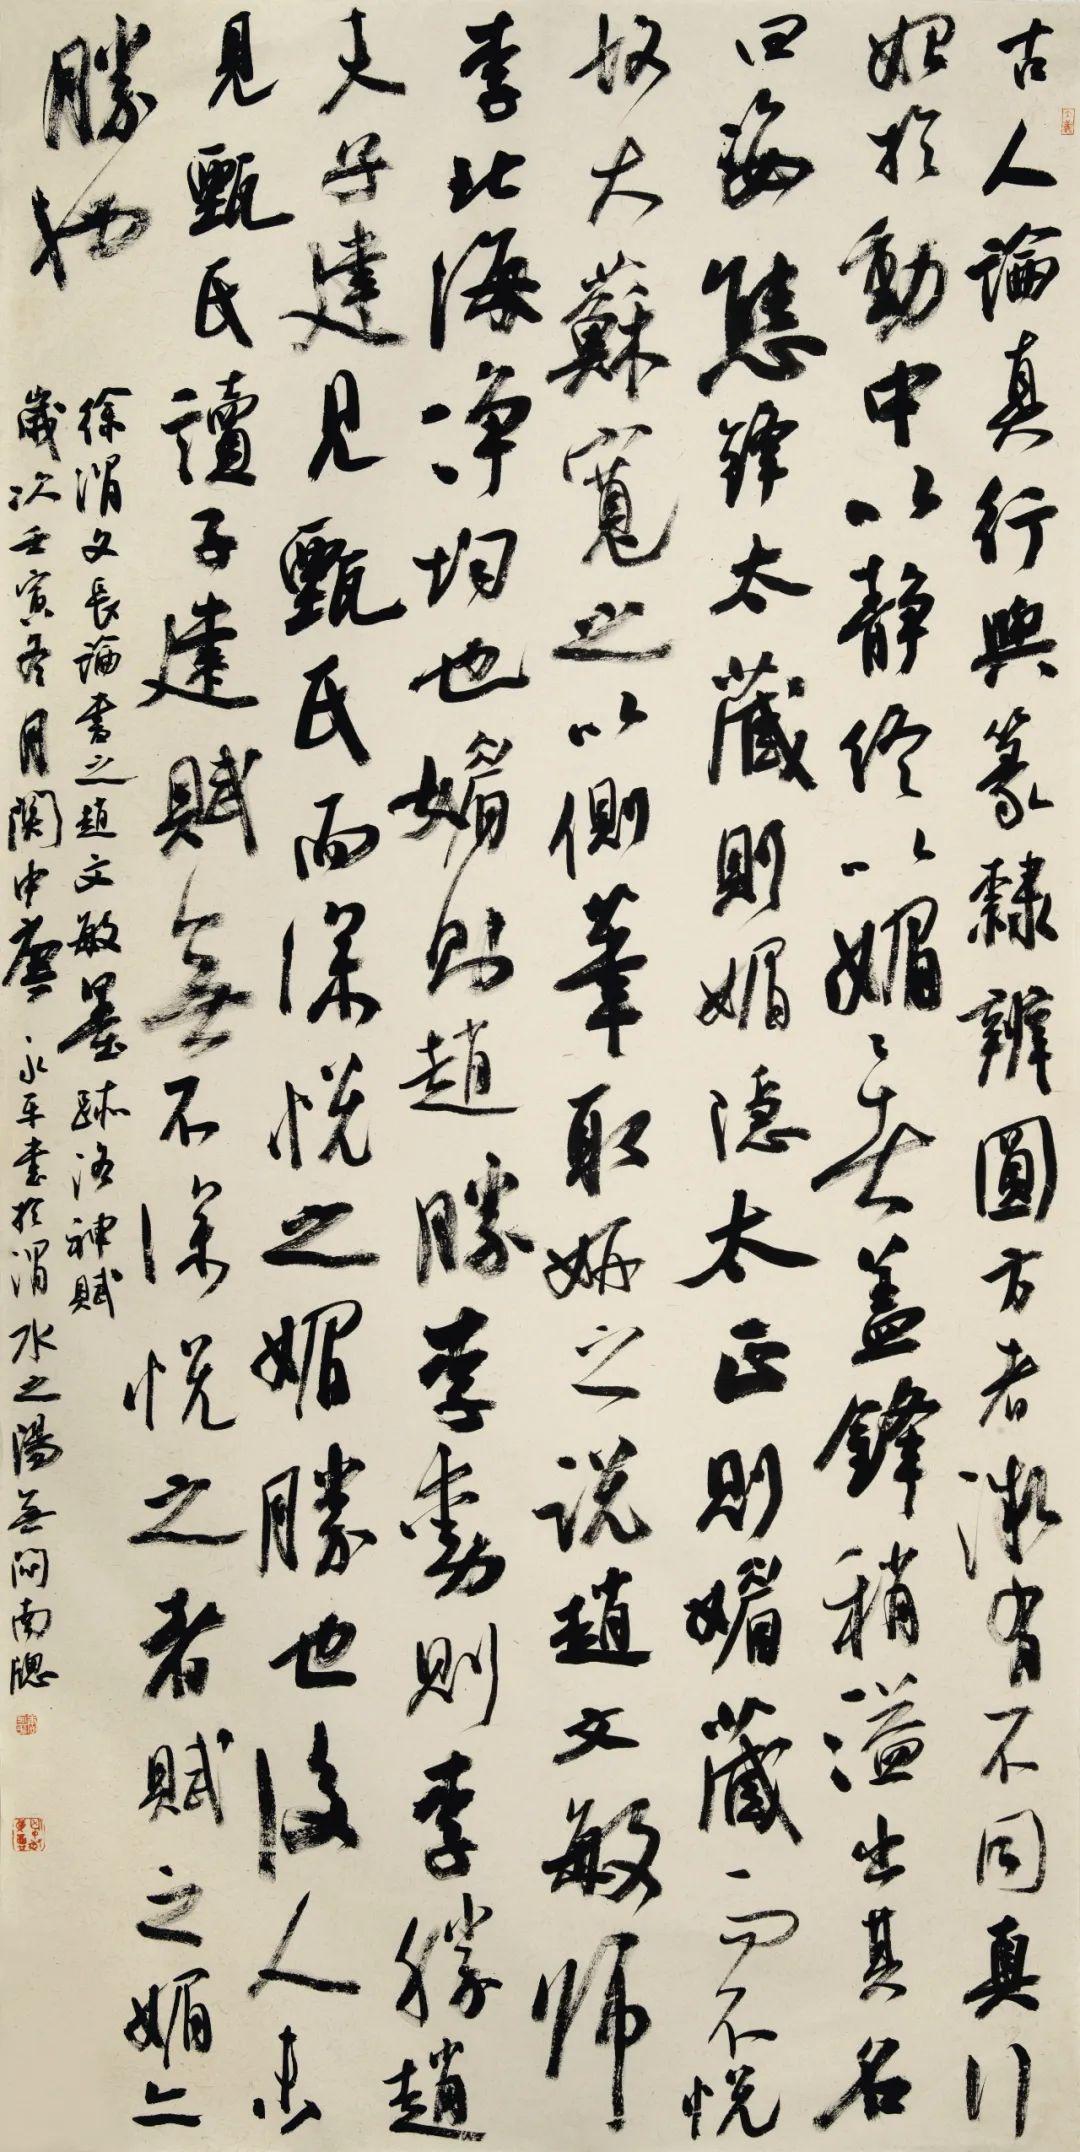 古人論真行與篆隸辨圓方者微有不同真行
始於動中以靜終以媚媚者蓋鋒稍溢出其名
曰姿態鋒太藏則媚隱太正則媚藏而不悅
故大蘇寬之以側筆取妍之說趙文敏師
李北海淨均也媚則趙勝李動則李勝趙
夫子建見甄氏而深悅之媚勝也後人未
見甄氏讀子建賦無不深悅之者賦之媚亦
勝也
徐渭文長論書之趙文敏墨跡洛神賦
歲次壬寅冬月關中永平書於渭水之陽無南窗